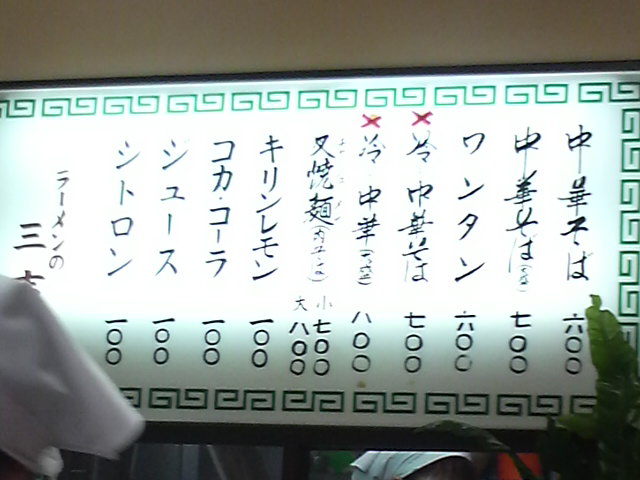 中華そば 六〇〇
中華そば(大盛) 七〇〇
ワンタン 六〇〇
冷中華そば 七〇〇
冷中華(大盛) 八〇〇
叉焼麺 小 七〇〇
大 八〇〇
キリンレモン 一〇〇
コカ・コーラ 一〇〇
ジュース 一〇〇
シトロン 一〇〇
ラーメンの
三